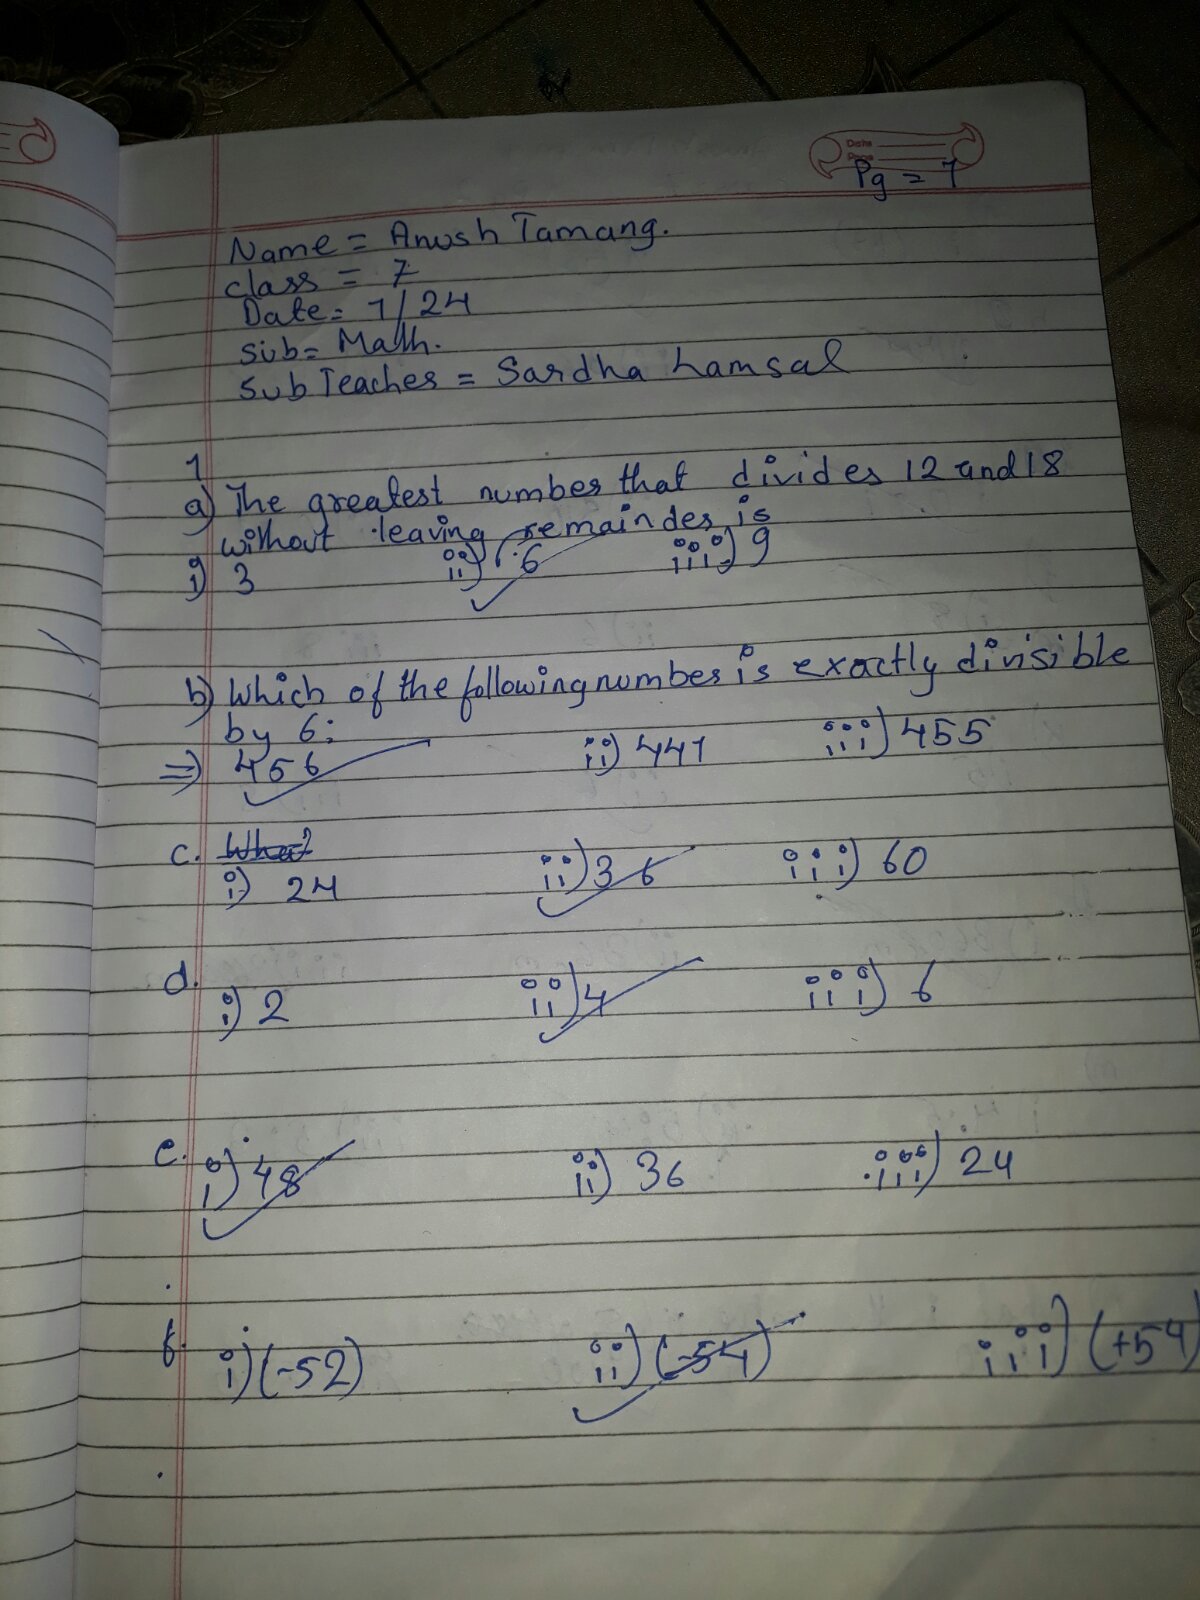 Date
Page
Pg = 7
Name = Anush Tamang.
class = 7
Date = 7/24
Sub = Math.
Sub Teacher = Sardha Lamsal
1
a) The greatest number that divides 12 and 18
without leaving remainder is
i) 3 ii) 6 iii) 9
b) Which of the following number is exactly divisible
by 6:
=>) 456 ii) 441 iii) 455
c. What
i) 24 ii) 36 iii) 60
d.
i) 2 ii) 4 iii) 6
e. i) 48 ii) 36 iii) 24
f. i) (-52) ii) (-54) iii) (+54)